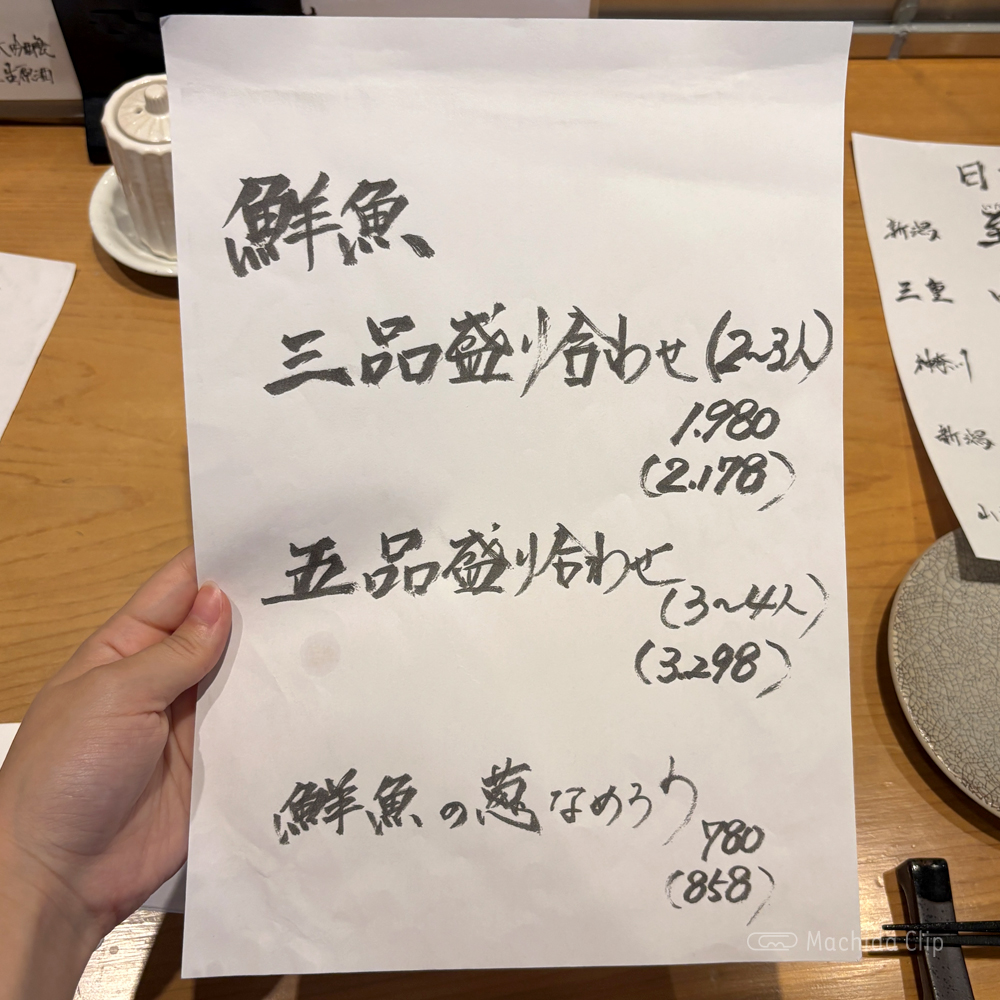 鮮魚
三品盛り合わせ(2~3人)
1.980
(2.178)
五品盛り合わせ
(3~4人)
(3.298)
鮮魚の葱なめろう
780
(858)
新潟
三重
神奈川
新潟
山
日
Machida Clip